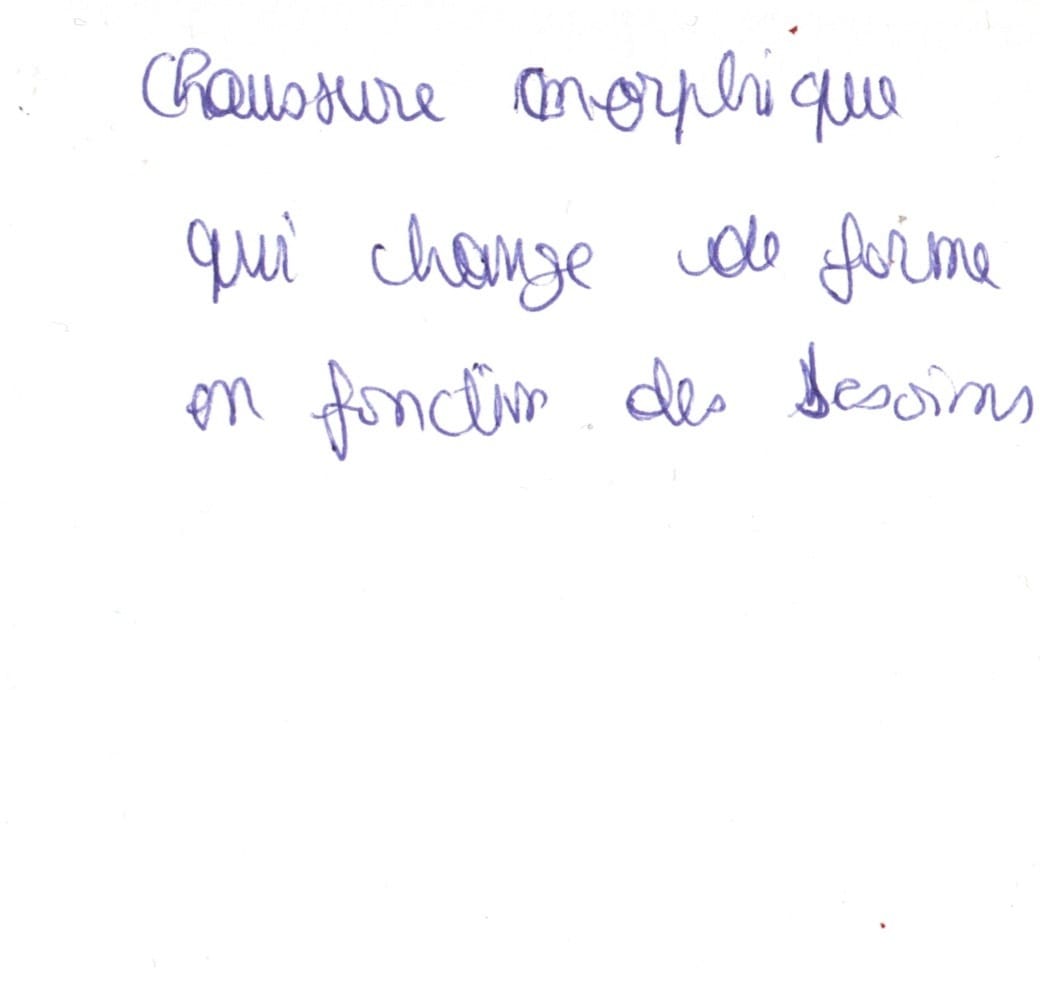 Chaussure morphique
qui change de forme
en fonction des besoins